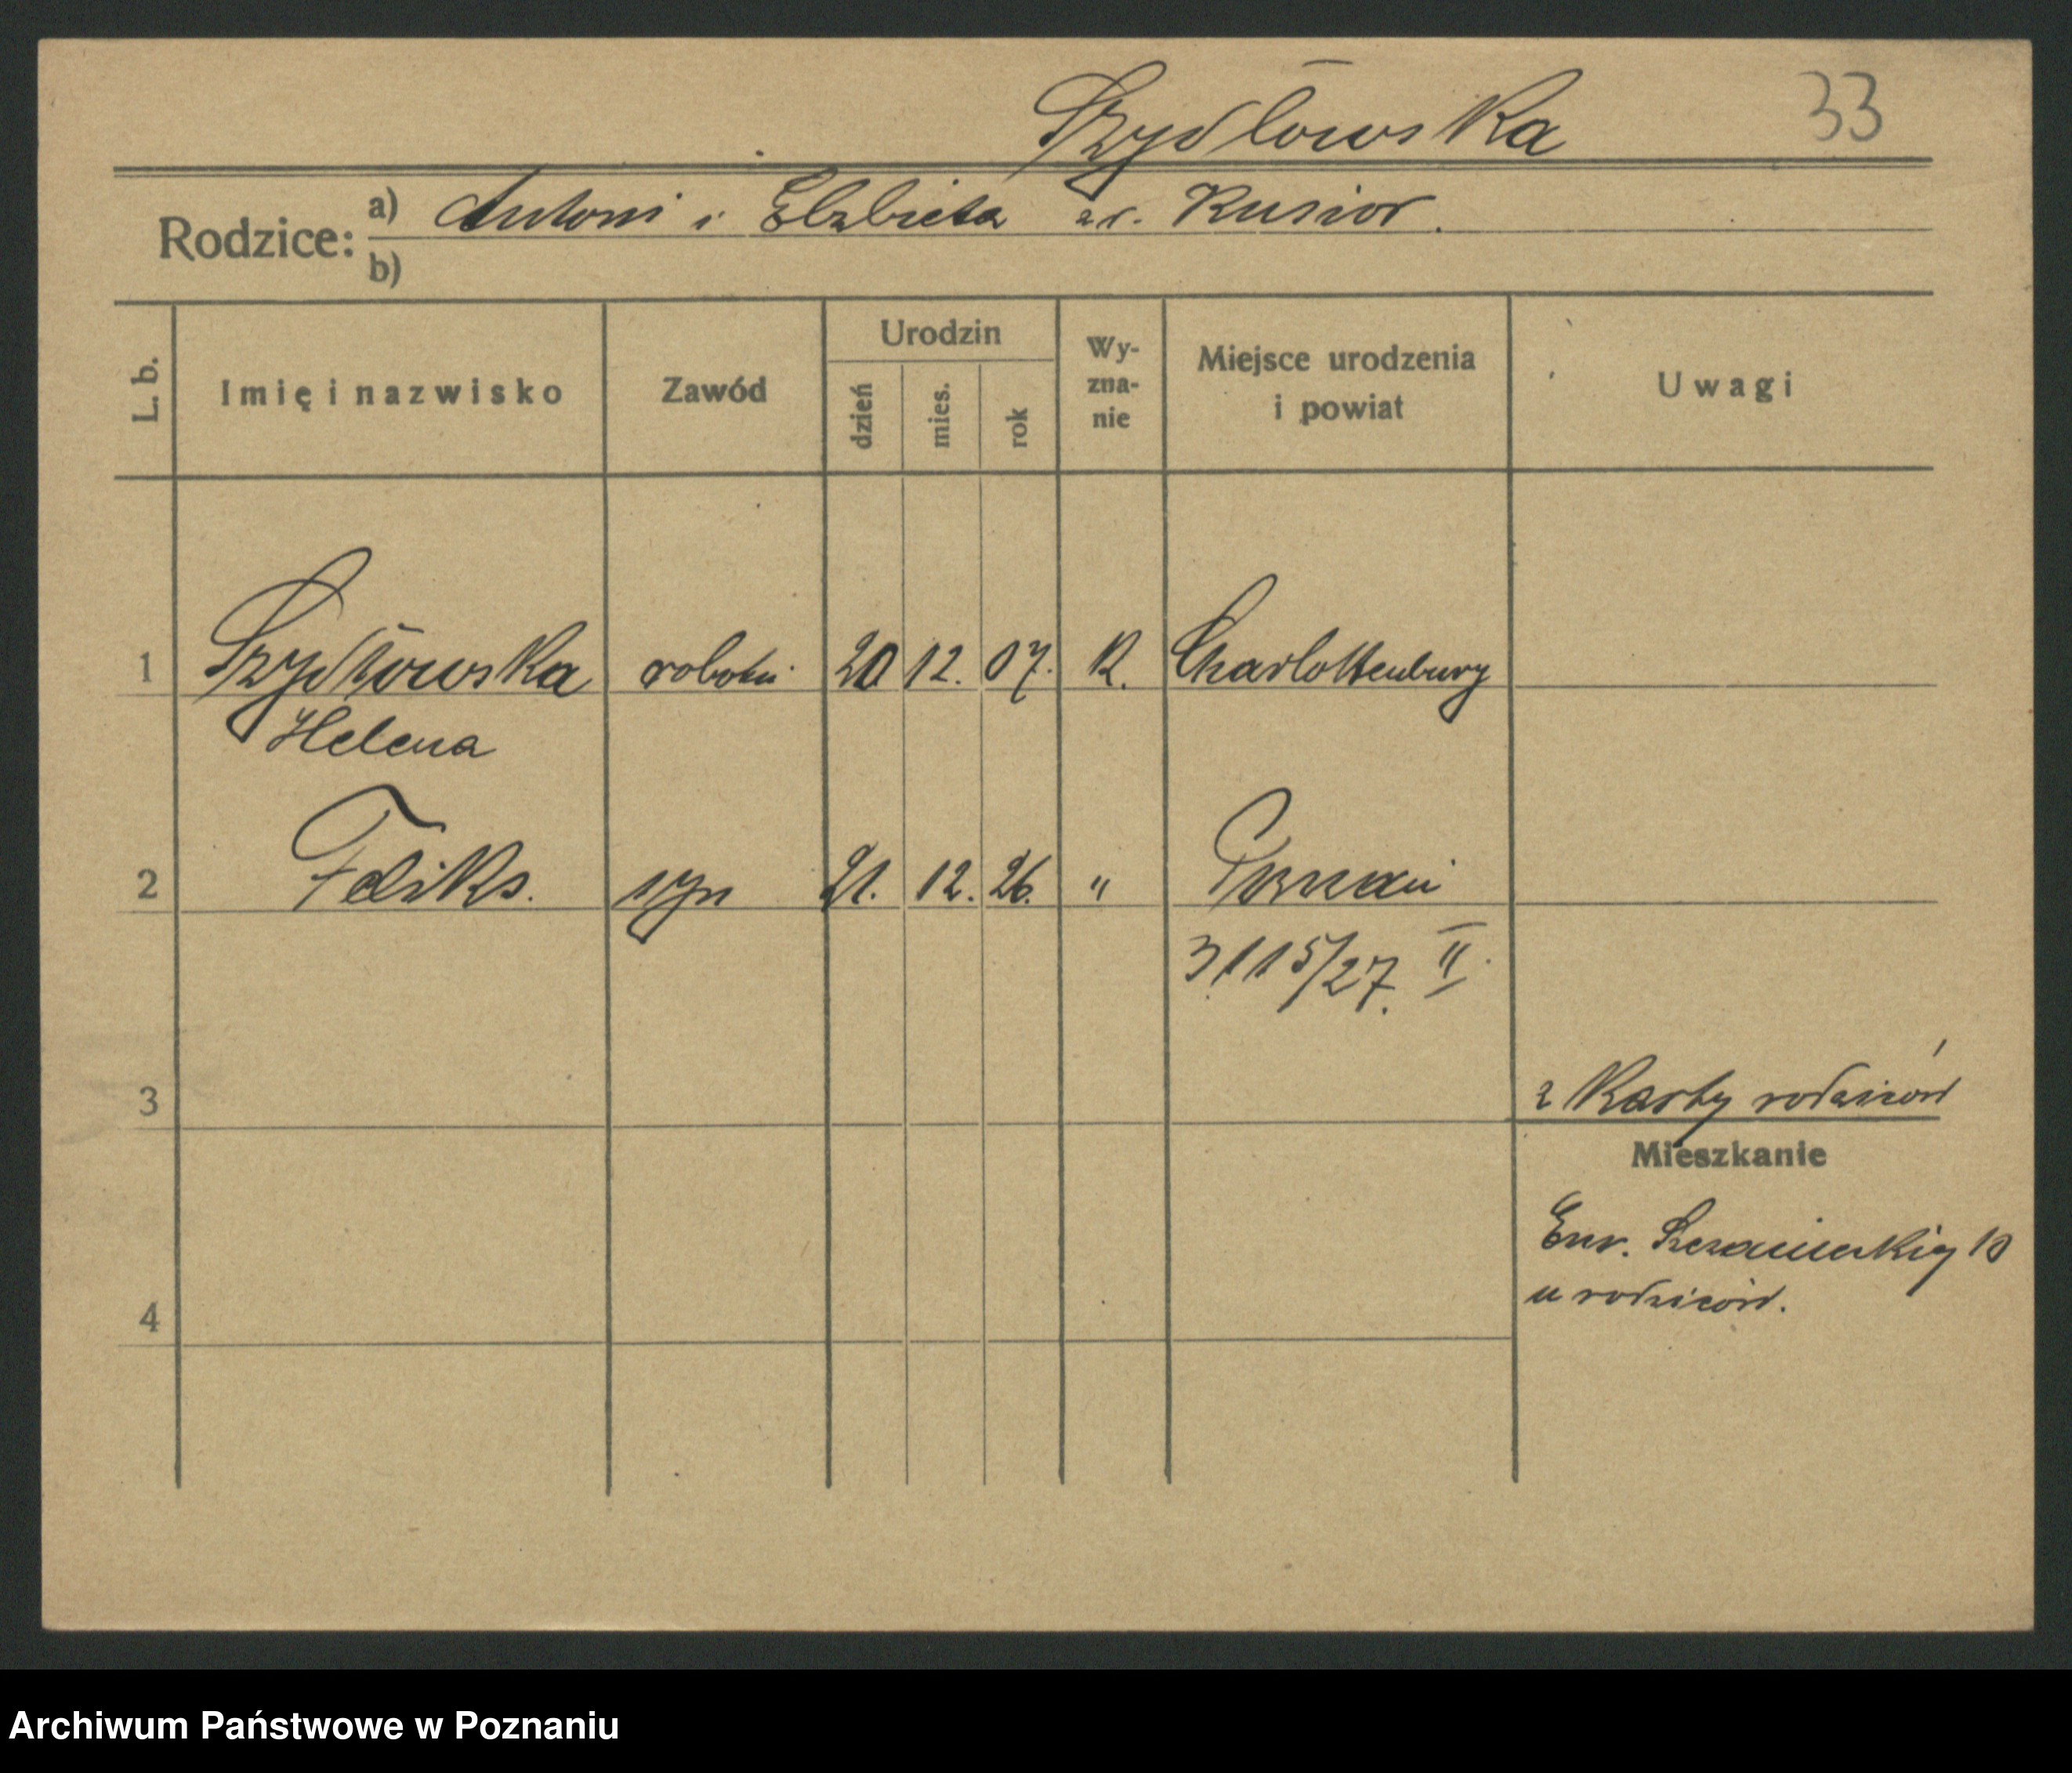 Szydłowska 33
Rodzice: a) Antoni i Elżbieta zd. Kusior.
b)
L. b. Imię i nazwisko Zawód Urodzin dzień mies. rok Wy-zna-nie Miejsce urodzenia i powiat Uwagi
1 Szydłowska robotn. 20 12. 07. R. Charlottenburg
Helena
2 Feliks. syn 21. 12. 26. " Poznań
3115/27. II.
3 z Karty rodziców
Mieszkanie
10
u rodziców.
4
Archiwum Państwowe w Poznaniu